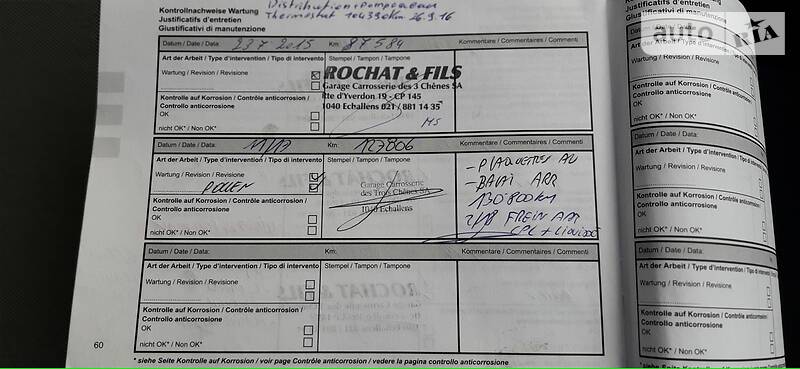 Kontrollnachweise Wartung
Justificatifs d'entretien
Giustificativi di manutenzione
Distribution + Pompe à eau
Thermostat 104390km 26.9.16
Datum / Date / Data: 23.7.2015 Km: 87584 Kommentar / Commentaires / Commenti
Art der Arbeit / Type d'intervention / Tipo di intervento Stempel / Tampon / Tampone
Wartung / Revision / Revisione
ROCHAT & FILS
Garage Carrosserie des 3 Chênes SA
Rte d'Yverdon 19 - CP 145
1040 Echallens 021 / 881 14 35
Kontrolle auf Korrosion / Contrôle anticorrosion /
Controllo anticorrosione
OK
nicht OK* / Non OK*
Datum / Date / Data: Km: 127806 Kommentar / Commentaires / Commenti
Art der Arbeit / Type d'intervention / Tipo di intervento Stempel / Tampon / Tampone
Wartung / Revision / Revisione
POLLEN
Garage Carrosserie
des Trois Chênes SA
1040 Echallens
- PLAQUETTES AV
- BALAI ARR
130'800km
2/18 FREIN ARR
CPL + Liquide
Kontrolle auf Korrosion / Contrôle anticorrosion /
Controllo anticorrosione
OK
nicht OK* / Non OK*
Datum / Date / Data: Km: Kommentar / Commentaires / Commenti
Art der Arbeit / Type d'intervention / Tipo di intervento Stempel / Tampon / Tampone
Wartung / Revision / Revisione
Kontrolle auf Korrosion / Contrôle anticorrosion /
Controllo anticorrosione
OK
nicht OK* / Non OK*
60
* siehe Seite Kontrolle auf Korrosion / voir page Contrôle anticorrosion / vedere la pagina controllo anticorrosione
Justificatifs d'entretien
Giustificativi di manutenzione
Datum / Date / Data:
Art der Arbeit / Type d'intervention
Wartung / Revision / Revisione
Kontrolle auf Korrosion / Contrôle
anticorrosione
OK
nicht OK* / Non OK*
Datum / Date / Data:
Art der Arbeit / Type d'intervention
Wartung / Revision / Revisione
Kontrolle auf Korrosion / Contrôle
Controllo anticorrosione
OK
nicht OK* / Non OK*
Datum / Date / Data:
Art der Arbeit / Type d'intervention
Wartung / Revision / Revisione
Kontrolle auf Korrosion
Controllo anticorrosione
OK
nicht OK* / Non OK*
auto RIA